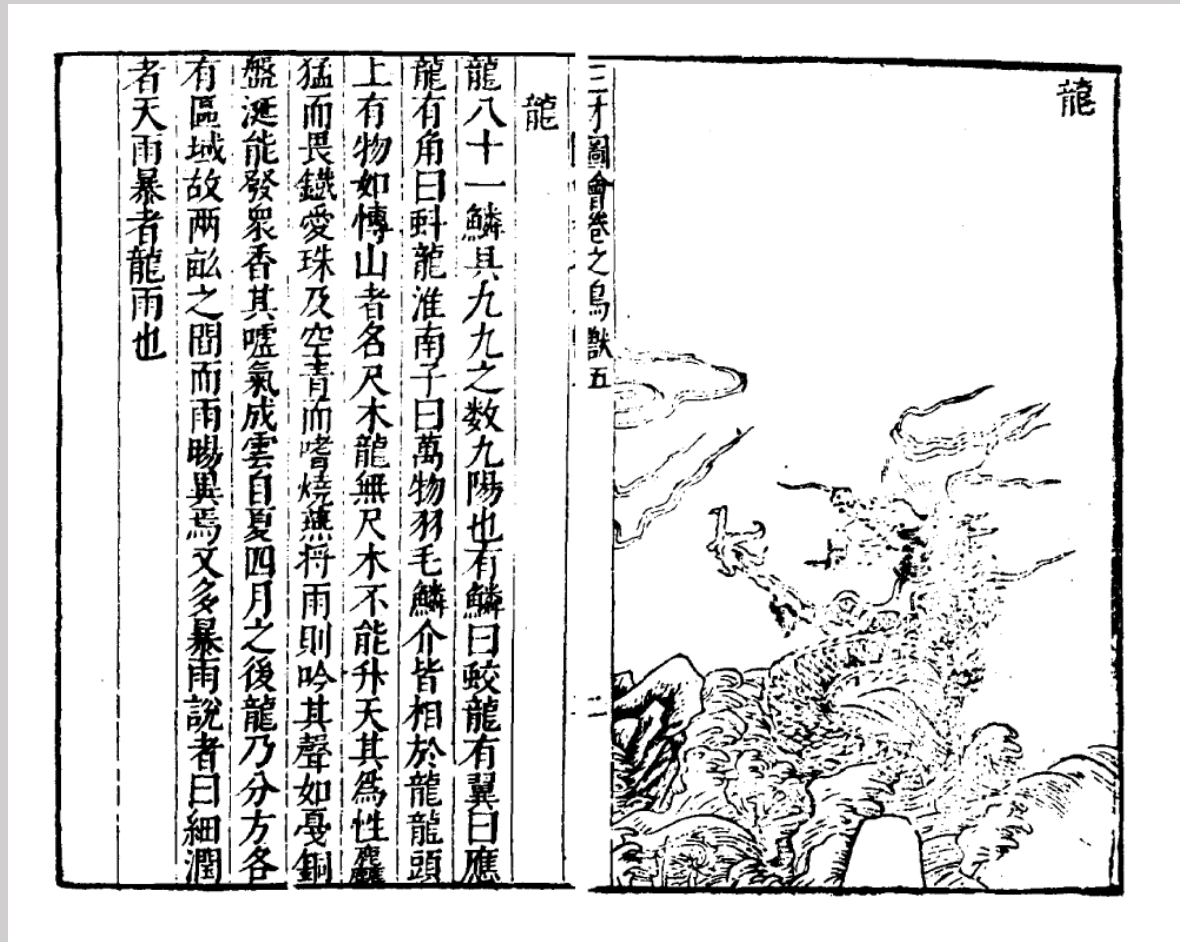 龍
三才圖會卷之鳥獸五
二
龍
龍八十一鱗具九九之数九陽也有鱗曰蛟龍有翼曰應
龍有角曰虯龍淮南子曰萬物羽毛鱗介皆相於龍龍頭
上有物如博山者名尺木龍無尺木不能升天其為性麤
猛而畏鐵愛珠及空青而嗜燒燕将雨則吟其聲如戞銅
盤涎能發衆香其噓氣成雲自夏四月之後龍乃分方各
有區域故兩畝之間而雨暘異焉又多暴雨說者曰細潤
者天雨暴者龍雨也